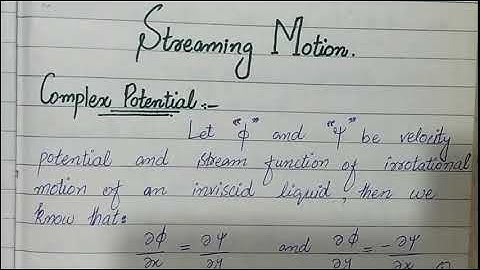 Streaming Motion.
Complex Potential :-
Let "ϕ" and "ψ" be velocity
potential and stream function of irrotational
motion of an inviscid liquid, then we
know that:
∂ϕ/∂x = ∂ψ/∂y and ∂ϕ/∂y = -∂ψ/∂x